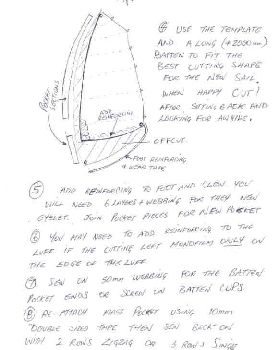 ④ USE THE TEMPLATE
AND A LONG (+2000mm)
BATTEN TO FIT THE
BEST CUTTING SHAPE
FOR THE NEW SAIL.
WHEN HAPPY CUT!
AFTER SITTING BACK AND
LOOKING FOR AWHILE.
POCKET SECTIONS
ADD REINFORCING
OFFCUT
FOOT REINFORCING
+ WEAR TAPE
⑤ ADD REINFORCING TO FOOT AND CLEW YOU
WILL NEED 6 LAYERS + WEBBING FOR THEY NEW
EYELET. JOIN POCKET PIECES FOR NEW POCKET
⑥ YOU MAY NEED TO ADD REINFORCING TO THE
LUFF IF THE CUTTING LEFT MONOFILM ONLY ON
THE EDGE OF THE LUFF
⑦ SEW ON 50mm WEBBING FOR THE BATTEN
POCKET ENDS OR SCREW ON BATTEN CUPS
⑧ RE-ATTACH MAST POCKET USING 10mm
DOUBLE SIDED TAPE THEN SEW BACK ON
WITH 2 ROWS ZIGZAG OR 3 ROWS SINGLE